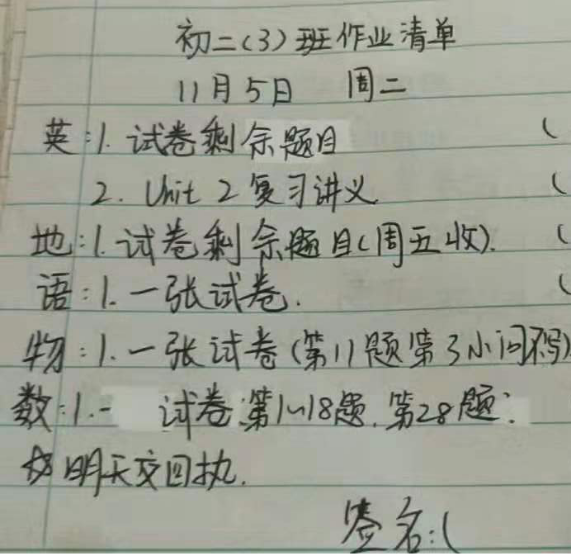 初二(3)班作业清单
11月5日 周二
英:1.试卷剩余题目 (
2.Unit 2复习讲义 (
地:1.试卷剩余题目(周五收). (
语:1.一张试卷. (
物:1.一张试卷(第11题第3小问不写)
数:1.一 试卷第1~18题.第28题.
明天交回执.
签名:(